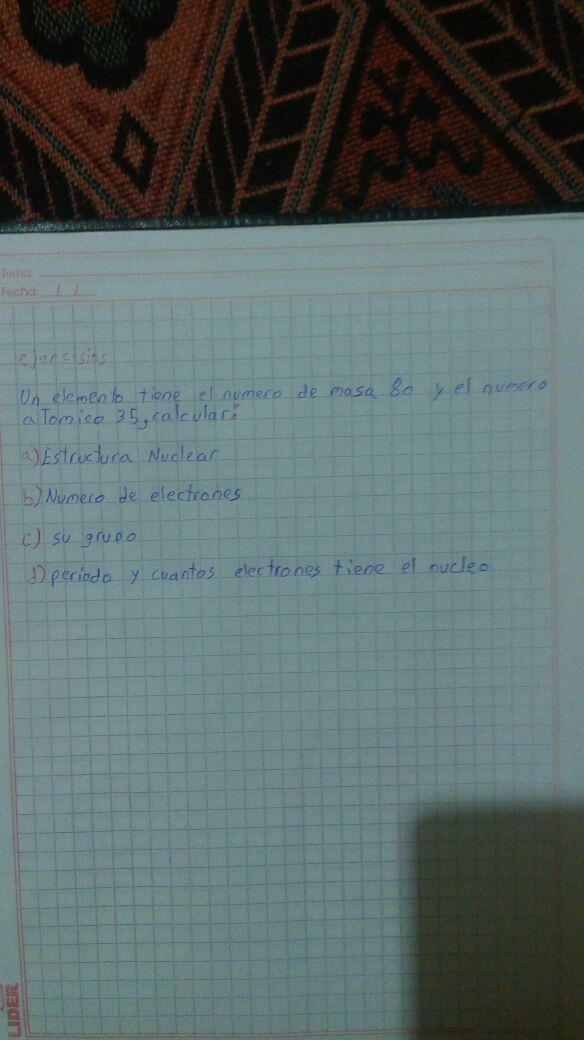 Tema:
Fecha: / /
ejercisios
Un elemento tiene el numero de masa 80 y el numero
aTomico 35, calcular:
a) Estructura Nuclear
b) Numero de electrones
c) su grupo
d) periodo y cuantos electrones tiene el nucleo
LIDER